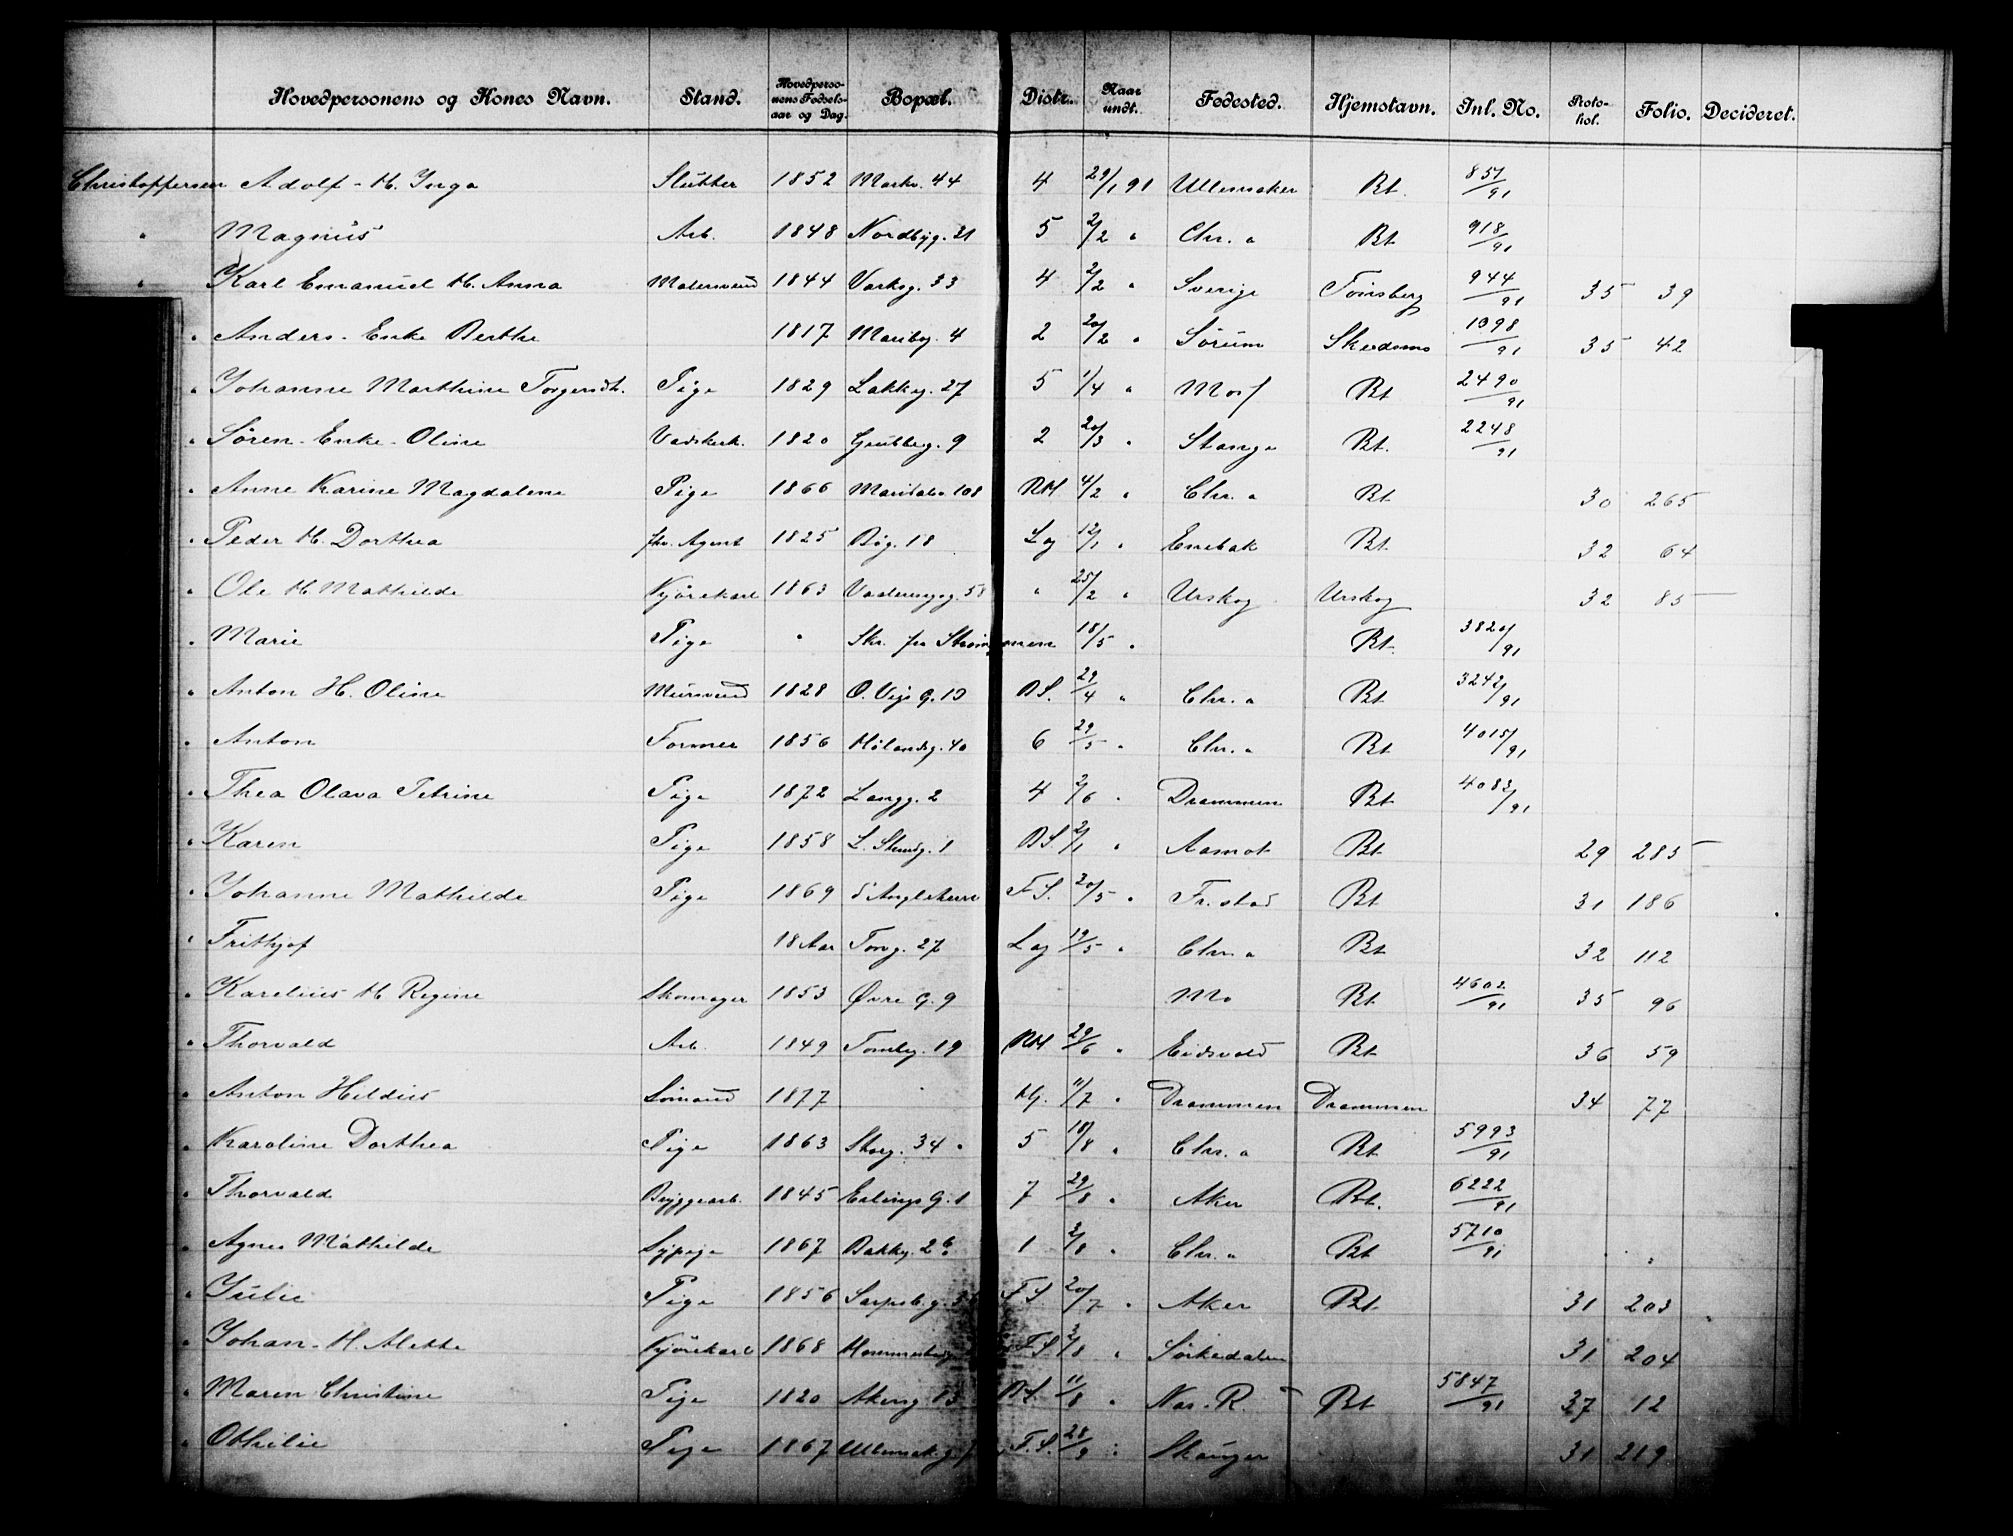 Hovedpersonens og Kones Navn. Stand. Hovedpersonens Fødselsaar og Dag. Bopæl. Distr. Naar undt. Fødested. Hjemstavn. Inl. No. Protokol. Folio. Decideret.
Christophersen Adolf - H. Inga Slubber 1852 Markv. 44 4 29/1 91 Ullensaker Bt. 857/91
" Magnus Arb. 1848 Nordbyg. 31 5 2/2 " Chr. a Bt 918/91
" Karl Emanuel H. Anna Malersvend 1844 4 2/2 " Sverige Tønsberg 944/91 35 39
" Anders - Enke Berthe 1817 Maribog. 4 2 20/2 " Sørum Skedsmo 1098/91 35 42
" Johanne Marthine Torgersdt. Pige 1829 Lakkeg. 27 5 1/4 " Bt 2490/91
" Søren - Enke - Oline Vadskerk. 1820 Grubbeg. 9 2 20/3 " Stange Bt. 2248/91
" Anne Karine Magdalene Pige 1866 Maridalsv 108 RH 4/2 " Chr. a Bt 30 265
" Peder H. Dorthea fhv. Agent 1825 Bøg. 18 Lag 12/1 " Enebak Bt 32 64
" Ole H Mathilde Kjørekarl 1863 " 25/2 " Urskog Urskog 32 85
" Marie Pige " Skr. fra Strømmen 18/5 " Bt. 3820/91
" Anton H. Oline Mursvend 1828 BS. 29/4 " Chr. a Bt 3242/91
" Anton Former 1856 Hølandsg. 40 6 29/5 " Chr. a Bt 4015/91
" Thea Olava Petrine Pige 1872 Langg. 2 4 2/6 " Drammen Bt 4083/91
" Karen Pige 1858 L. Strandg. 1 BS. 2/1 " Aamot Bt 29 285
" Johanne Mathilde Pige 1869 F. S. 20/5 " Fr. stad Bt 31 186
" Frithjof 18 Aar Torvg. 27 Lag 19/5 " Chr. a Bt 32 112
" Karelius H Regine Skomager 1853 Øvre G. 9 Mo Bt 4602/91 35 96
" Thorvald Arb. 1849 Tomteg. 19 RH 29/6 " Eidsvold Bt 36 59
" Anton Heldius Sømand 1877 Hj. 11/7 " Drammen Drammen 34 77
" Karoline Dorthea Pige 1863 Storg. 34 " 5 18/8 " Chr. a Bt 5993/91
" Thorvald Byggearb. 1845 Erlings G. 1 7 29/8 " Aker Bt. 6222/91
" Agnes Mathilde Sypige 1867 Bakkeg. 26 1 2/8 " Chr. a Bt 5710/91
" Julie Pige 1856 Sarpsb. g. F S. 20/7 " Aker Bt 31 203
" Johan - H. Alette Kjørekarl 1868 F. S. 3/8 " Sørkedalen 31 204
" Maren Christine Pige 1820 Akersg. 13 BS. 11/8 " Nas. R. Bt 5847/91 37 12
" Othilie Pige 1867 F. S. 28/9 " Skauger 31 219